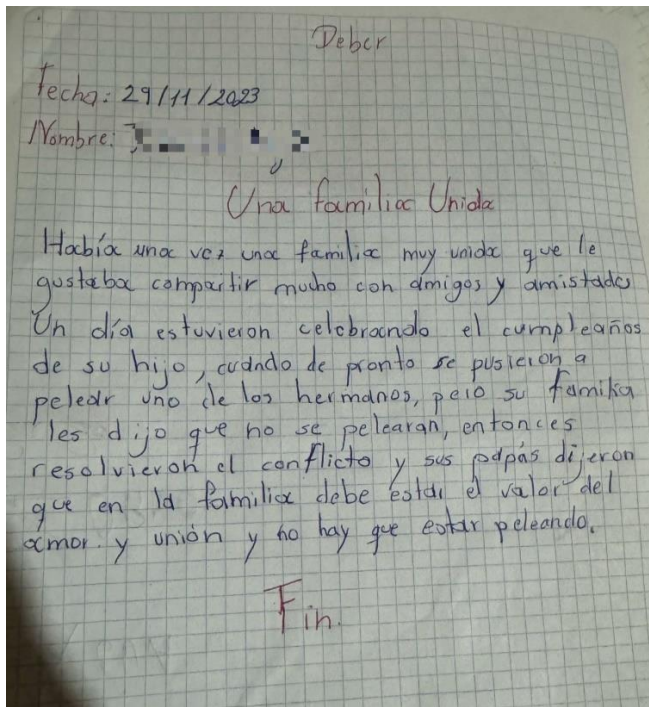 Deber
Fecha: 29/11/2023
Nombre:
Una familia Unida
Había una vez una familia muy unida que le
gustaba compartir mucho con amigos y amistade
Un día estuvieron celebrando el cumpleaños
de su hijo, cuándo de pronto se pusieron a
pelear uno de los hermanos, pero su familia
les dijo que no se pelearan, entonces
resolvieron el conflicto y sus papás dijeron
que en la familia debe estar el valor del
amor y unión y no hay que estar peleando.
Fin.